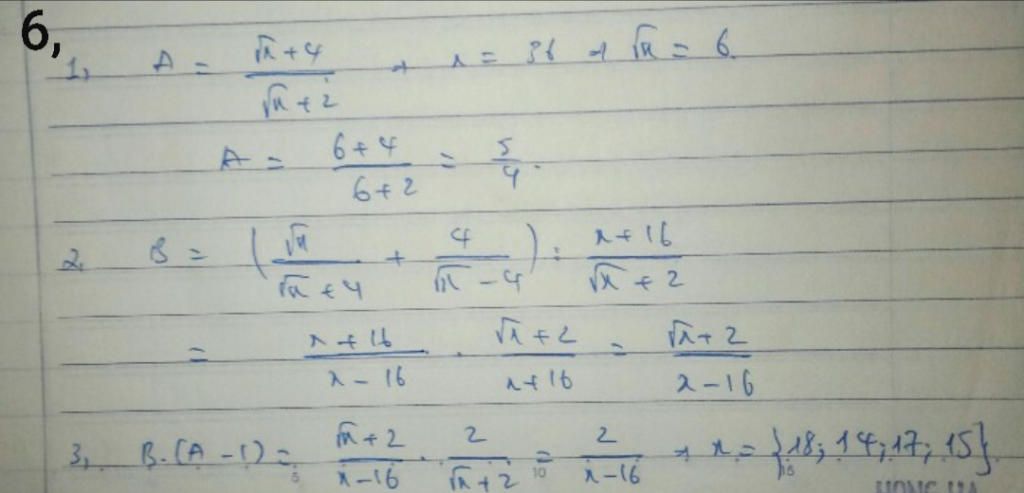 6,
1, A = (√x + 4)/(√x + 2) → x = 36 → √x = 6.
A = (6 + 4)/(6 + 2) = 5/4.
2. B = (√x/(√x + 4) + 4/(√x - 4)) : (x + 16)/(√x + 2)
= (x + 16)/(x - 16) . (√x + 2)/(x + 16) = (√x + 2)/(x - 16)
3, B.(A - 1) = (√x + 2)/(x - 16) . 2/(√x + 2) = 2/(x - 16) → x = {18; 14; 17; 15}.
5 10 15
HONG HA